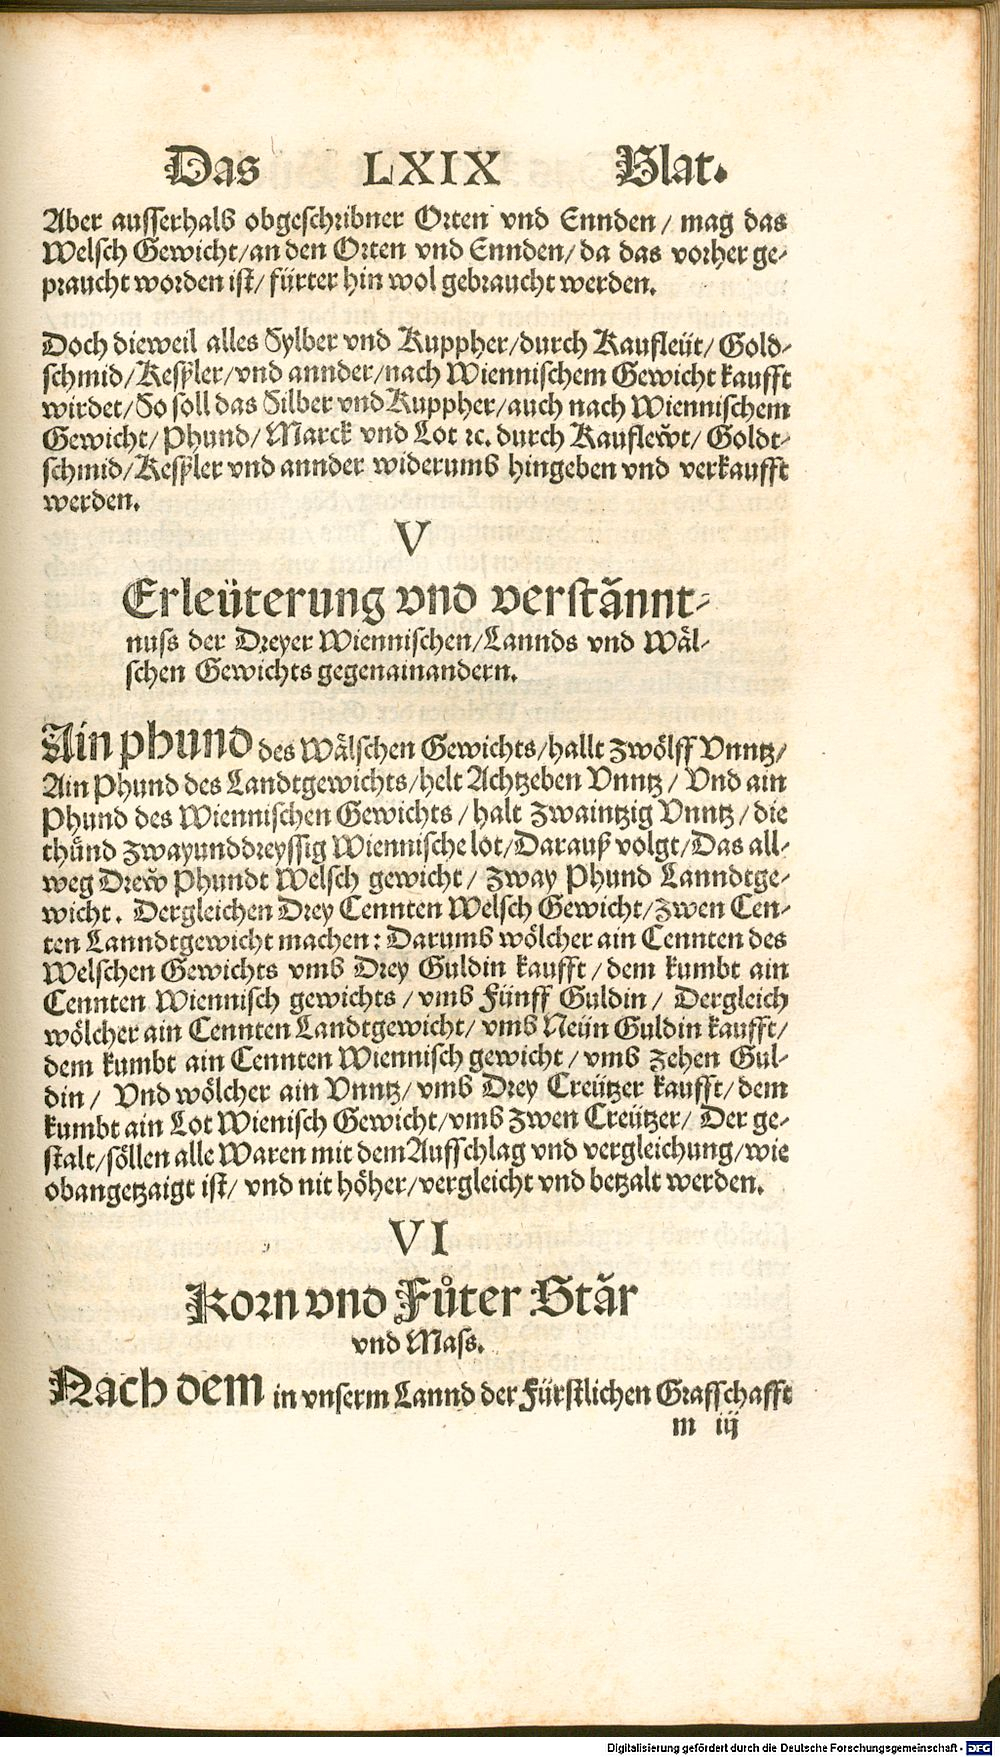 Das LXIX Blat.
Aber ausserhalb obgeschribner Orten vnd Ennden / mag das
Welsch Gewicht / an den Orten vnd Ennden / da das vorher ge-
praucht worden ist / fürter hin wol gebraucht werden.
Doch dieweil alles Sylber vnd Kuppher / durch Kaufleüt / Gold-
schmid / Keßler / vnd annder / nach Wiennischem Gewicht kaufft
wirdet / So soll das Silber vnd Kuppher / auch nach Wiennischem
Gewicht / Phund / Marck vnd Lot ꝛc. durch Kauflewt / Goldt-
schmid / Keßler vnd annder widerumb hingeben vnd verkaufft
werden.
V
Erleüterung vnd verstännt-
nuss der Dreyer Wiennischen / Lannds vnd Wäl-
schen Gewichts gegenainandern.
Ain phund des Wälschen Gewichts / hallt zwölff Vnntz /
Ain Phund des Landtgewichts / helt Achtzehen Vnntz / Vnd ain
Phund des Wiennischen Gewichts / halt zwaintzig Vnntz / die
thůnd zwayunddreyssig Wiennische lot / Darauß volgt / Das all-
weg Drew Phundt Welsch gewicht / zway Phund Lanndtge-
wicht. Dergleichen Drey Cennten Welsch Gewicht / zwen Cen-
ten Lanndtgewicht machen: Darumb wölcher ain Cennten des
Welschen Gewichts vmb Drey Guldin kaufft / dem kumbt ain
Cennten Wiennisch gewichts / vmb Fünff Guldin / Dergleich
wölcher ain Cennten Landtgewicht / vmb Neün Guldin kaufft /
dem kumbt ain Cennten Wiennisch gewicht / vmb zehen Gul-
din / Vnd wölcher ain Vnntz / vmb Drey Creützer kaufft / dem
kumbt ain Lot Wienisch Gewicht / vmb zwen Creützer / Der ge-
stalt / söllen alle Waren mit dem Aufschlag vnd vergleichung / wie
obangetzaigt ist / vnd nit höher / vergleicht vnd betzalt werden.
VI
Korn vnd Fůter Stär
vnd Mass.
Nach dem in vnserm Lannd der Fürstlichen Grafschafft
m iij
Digitalisierung gefördert durch die Deutsche Forschungsgemeinschaft - DFG